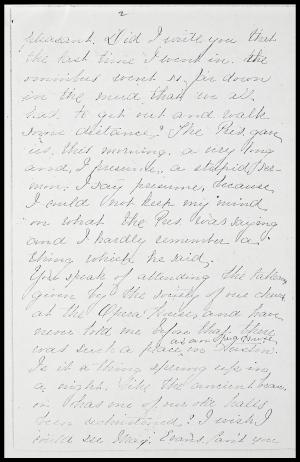 2
pleasant. Did I write you that
the last time I went in the
omnibus went so far down
in the mud that we all
had to get out and walk
some distance? The Pres. gave
us, this morning, a very long
and, I presume, a stupid, ser-
mon. I say presume, because,
I could not keep my mind
on what the Pres. was saying
and I hardly remember a
thing which he said.
You speak of attending the
given by the society of our church
at the Opera House, and have
never told me before that there
was such a place, as an Opera House in
Is it a thing sprung up in
a night, like the ancient
or has one of our old halls
been rechristened? I wish I
could see Mary Evans, ain't you